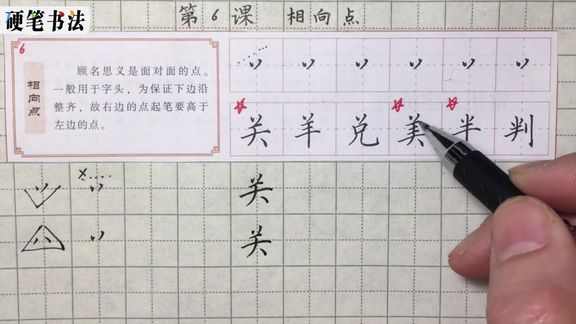 硬笔书法
第6课 相向点
6
相向点
顾名思义是面对面的点。
一般用于字头，为保证下边沿
整齐，故右边的点起笔要高于
左边的点。
关 羊 兑 美 半 判
关
关